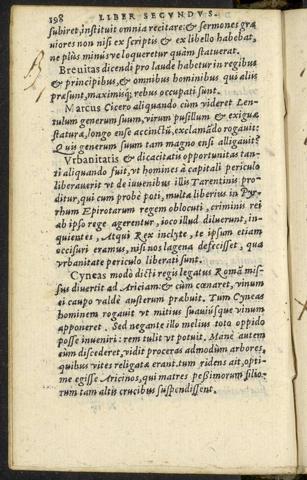 198 LIBER SECVNDVS.
subiret, instituit omnia recitare: & sermones gra
uiores non nisi ex scriptis & ex libello habebat,
ne plus minusve loqueretur quàm statuerat.
Breuitas dicendi pro laude habetur in regibus
& principibus, & omnibus hominibus qui aliis
præsunt, maximisq; rebus occupati sunt.
Marcus Cicero aliquando cùm videret Len-
tulum generum suum, virum pusillum & exiguæ
staturæ, longo ense accinctũ, exclamãdo rogauit:
Quis generum suum tam magno ensi alligauit?
Vrbanitatis & dicacitatis opportunitas tan-
ti aliquando fuit, vt homines à capitali periculo
liberauerit vt de iuuenibus illis Tarentinis pro-
ditur, qui cum probè poti, multa liberius in Py-
rhum Epirotarum regem oblocuti, criminis rei
ab ipso rege agerentur, ioco illud diluerunt, in-
quientes, Atqui Rex inclyte, te ipsum etiam
occisuri eramus, nisi nos lagena defecisset, qua
vrbanitate periculo liberati sunt.
Cyneas modo dicti regis legatus Romã mis-
sus diuertit ad Ariciam: & cùm cœnaret, vinum
ei caupo valdè austerum prabuit. Tum Cyneas
hominem rogauit vt mitius suauiúsque vinum
apponeret. Sed negante illo melius toto oppido
posse inueniri: rem tulit vt potuit. Mane autem
cùm discederet, vidit proceras admodùm arbores,
quibus vites religata erant. tum ridens ait, opti-
me egisse Aricinos, qui matres pessimorum filio-
rum tam altis crucibus suspendissent.